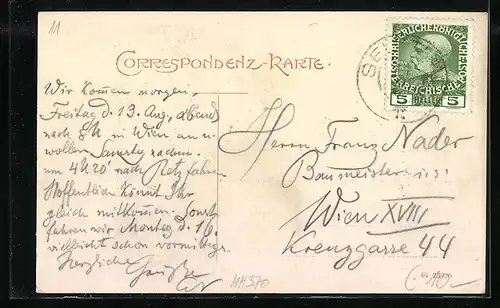 11
CORRESPONDENZ-KARTE.
KAISERLICHE KÖNIGLICHE
ÖSTERREICHISCHE POST
5 HELLER 5
SEE
Wir kommen morgen,
Freitag d. 13. Aug. abend
nach 8h in Wien an u.
wollen Samstag nachm.
um 4h20 nach Retz fahren
Hoffentlich könnt Ihr
gleich mitkommen. Sonst
fahren wir Montag d. 16.
vielleicht schon vormittags.
Herzliche Grüße
Herrn Franz Nader
Baumeister
Wien XVIII
Kreuzgasse 44
HH370